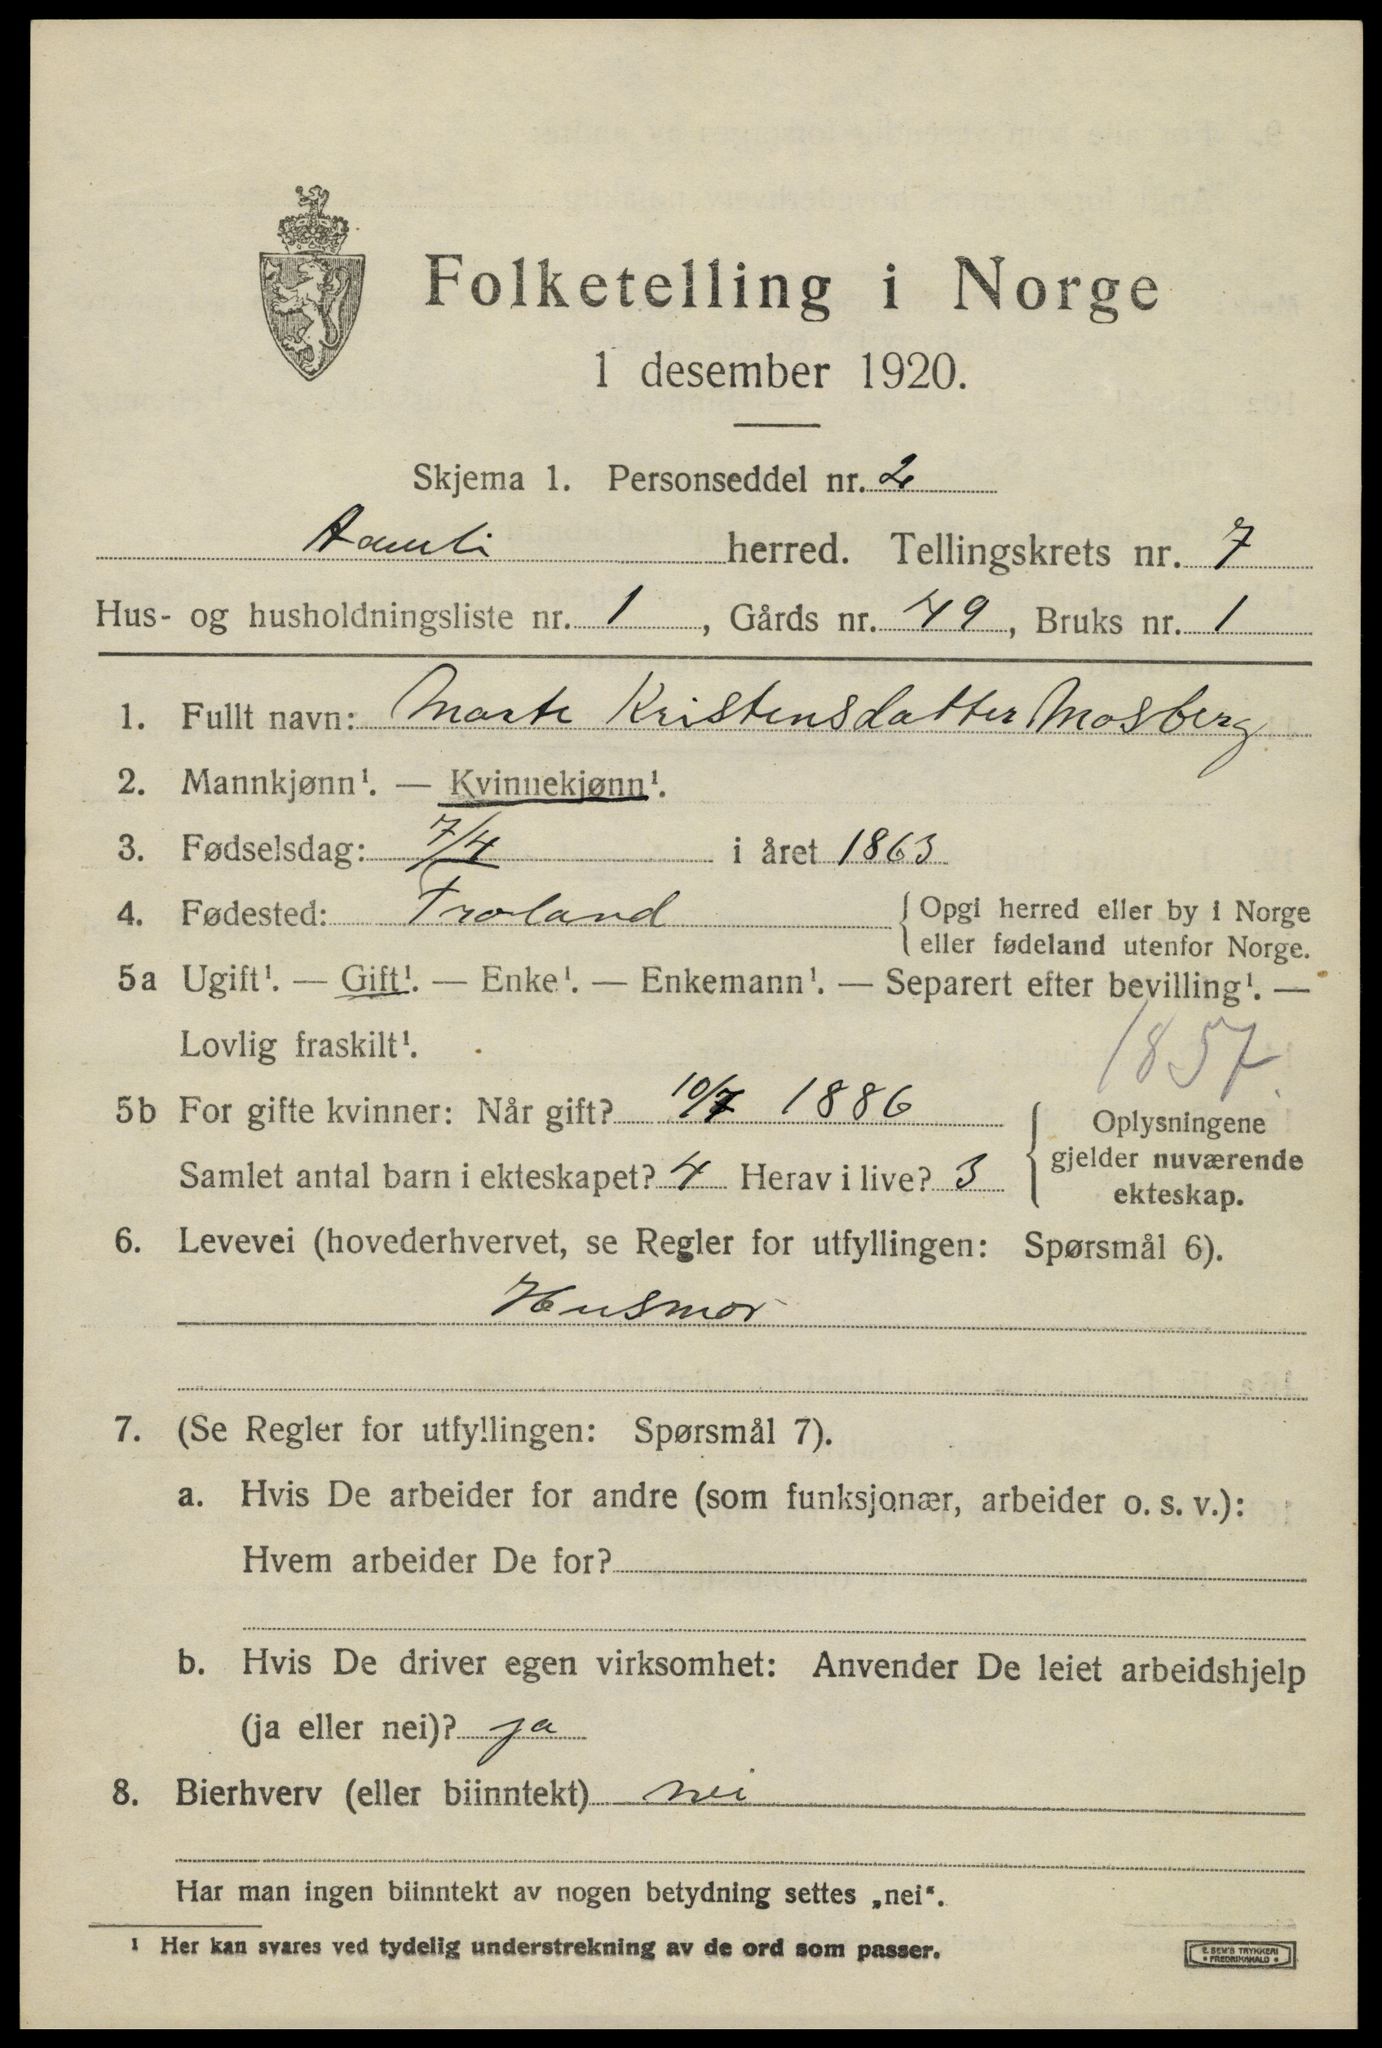 Folketelling i Norge
1 desember 1920.
Skjema 1. Personseddel nr. 2
Aamli herred. Tellingskrets nr. 7
Hus- og husholdningsliste nr. 1, Gårds nr. 49, Bruks nr. 1
1. Fullt navn: Marte Kristensdatter Mosberg
2. Mannkjønn¹. — Kvinnekjønn¹.
3. Fødselsdag: 7/4 i året 1863
4. Fødested: Froland { Opgi herred eller by i Norge
eller fødeland utenfor Norge.
5a Ugift¹. — Gift¹. — Enke¹. — Enkemann¹. — Separert efter bevilling¹. —
Lovlig fraskilt¹.
1857.
5b For gifte kvinner: Når gift? 10/7 1886
Samlet antal barn i ekteskapet? 4 Herav i live? 3
Oplysningene
gjelder nuværende
ekteskap.
6. Levevei (hovederhvervet, se Regler for utfyllingen: Spørsmål 6).
Husmor
7. (Se Regler for utfyllingen: Spørsmål 7).
a. Hvis De arbeider for andre (som funksjonær, arbeider o. s. v.):
Hvem arbeider De for?
b. Hvis De driver egen virksomhet: Anvender De leiet arbeidshjelp
(ja eller nei)? ja
8. Bierhverv (eller biinntekt) nei
Har man ingen biinntekt av nogen betydning settes „nei“.
¹ Her kan svares ved tydelig understrekning av de ord som passer.
E. SEM'S TRYKKERI
• FREDRIKSHALD •